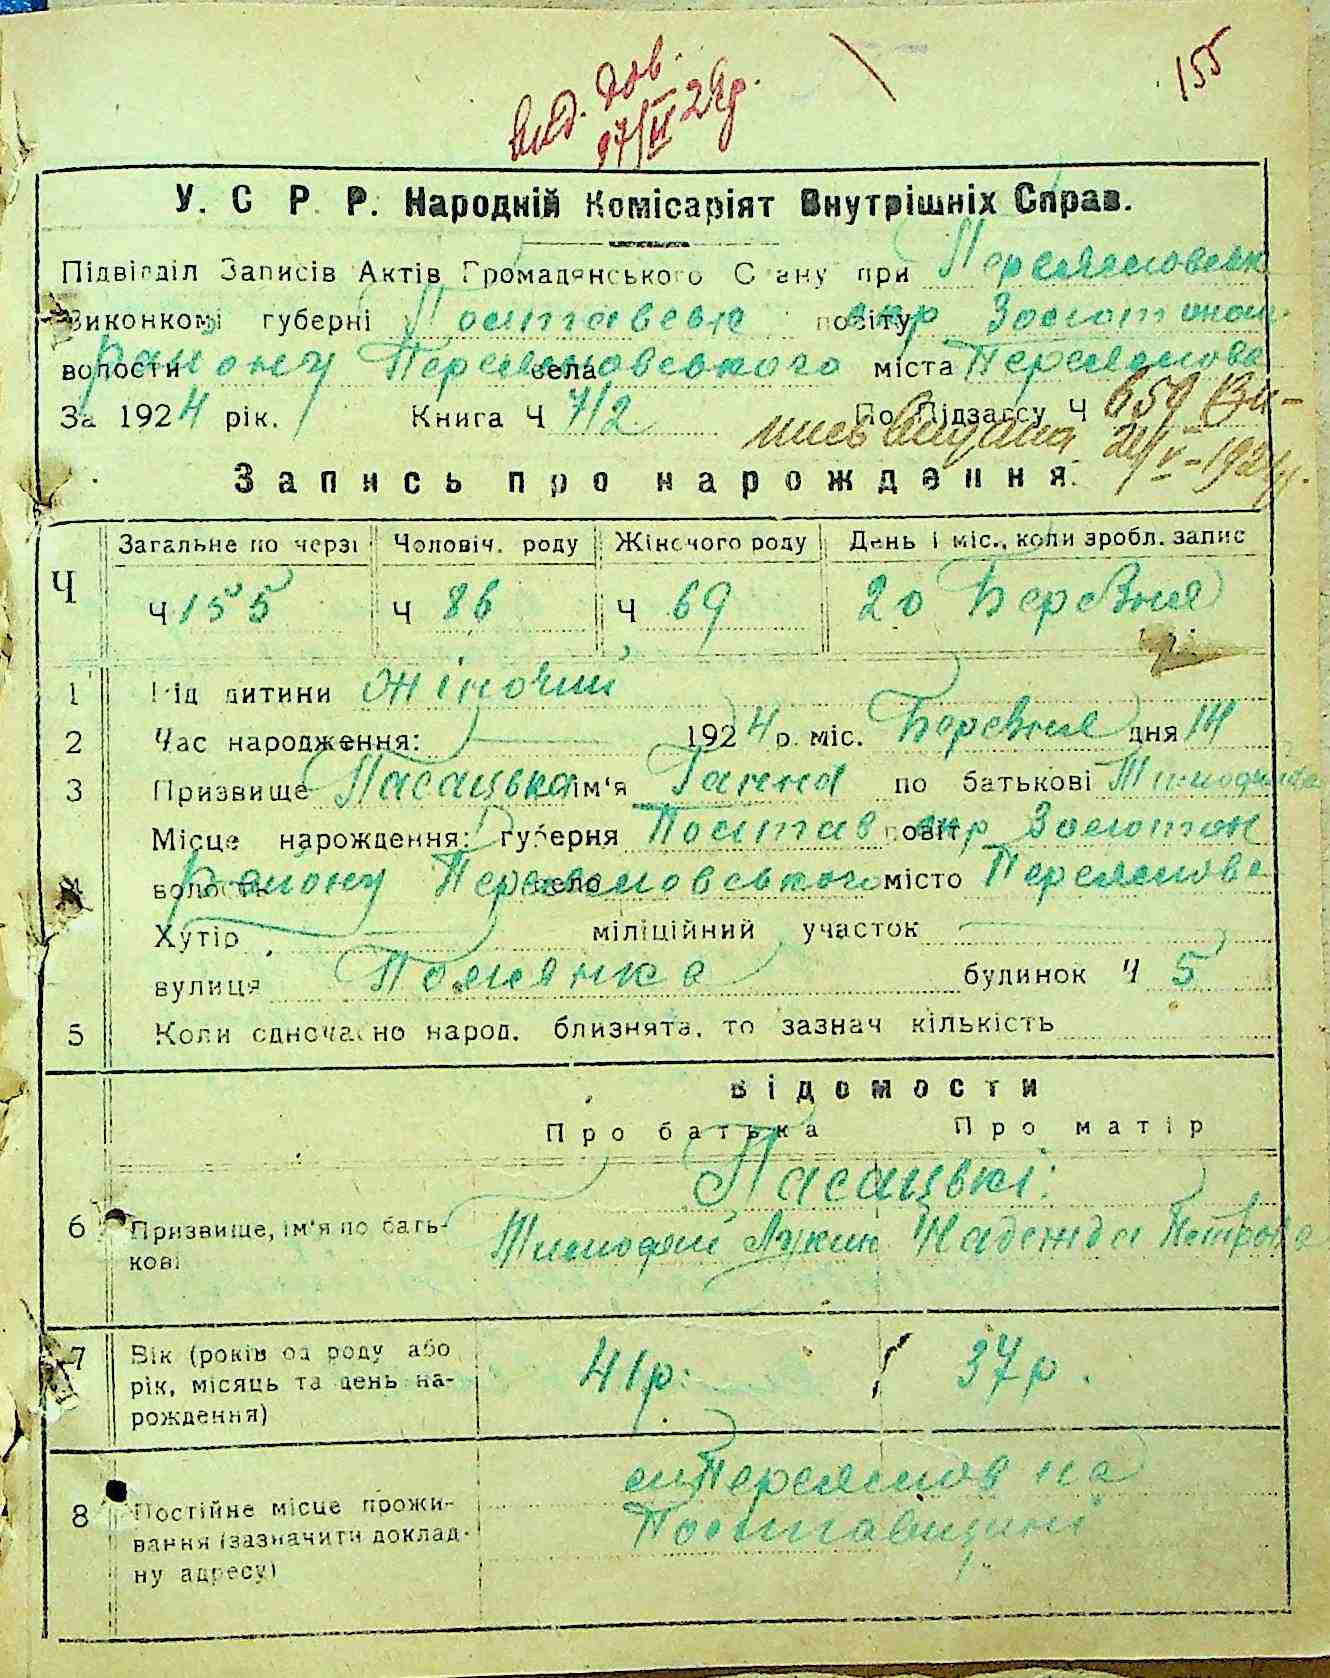 155
Вид. Дов.
У. С Р. Р. Народній Комісаріят Внутрішніх Справ.
Підвідділ Записів Актів Громадянського Стану при
Виконкомі губерні Полтавськ повіту окр Золотонош.
волости району села міста
За 1924 рік. Книга Ч 7/2 По Підзагсу Ч 659 Ви-
пись Видана 21/V-1924р.
Запись про нарождення.
Ч Загальне по черзі Чоловіч. роду Жіночого роду День і міс., коли зробл. запис
Ч 155 Ч 86 Ч 69 20 Березня
1 Рід дитини жіночий
2 Час народження: 1924 р. міс. Березня дня 14
3 Призвище Пасацька ім'я Ганна по батькові
4 Місце нарождення: губерня Полтав повіт окр Золотон
волость району село місто
Хутір міліційний участок
вулиця будинок Ч 5
5 Коли одночасно народ. близнята, то зазнач кількість
Відомости
Про батька Про матір
Пасацькі:
6 Призвище, ім'я по бать- Тимофій Лукич Надежда Петрова
кові
7 Вік (років од роду або 41 р. 37 р.
рік, місяць та день на-
рождення)
8 Постійне місце прожи-
вання (зазначити доклад- Полтавщині
ну адресу)